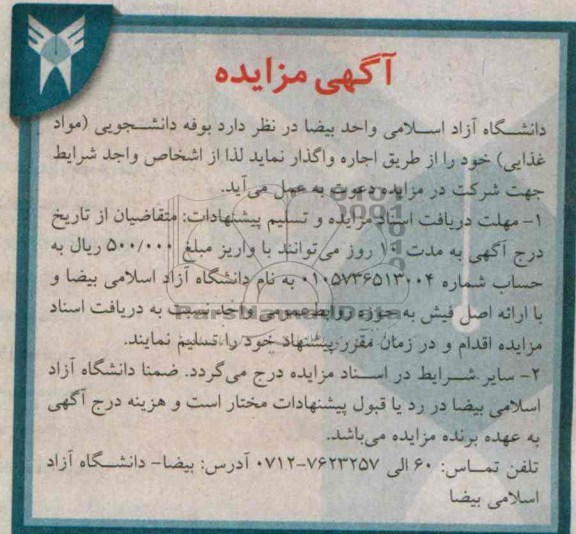 آگهی مزایده
دانشگاه آزاد اسلامی واحد بیضا در نظر دارد بوفه دانشجویی (مواد
غذایی) خود را از طریق اجاره واگذار نماید لذا از اشخاص واجد شرایط
جهت شرکت در مزایده دعوت به عمل می آید.
۱- مهلت دریافت اسناد مزایده و تسلیم پیشنهادات: متقاضیان از تاریخ
درج آگهی به مدت ۱۰ روز می توانند با واریز مبلغ ۵۰۰/۰۰۰ ریال به
حساب شماره ۰۱۰۵۷۳۶۵۱۳۰۰۴ به نام دانشگاه آزاد اسلامی بیضا و
با ارائه اصل فیش به حوزه روابط عمومی واحد نسبت به دریافت اسناد
مزایده اقدام و در زمان مقرر پیشنهاد خود را تسلیم نمایند.
۲- سایر شرایط در اسناد مزایده درج می گردد. ضمنا دانشگاه آزاد
اسلامی بیضا در رد یا قبول پیشنهادات مختار است و هزینه درج آگهی
به عهده برنده مزایده می‌باشد.
تلفن تماس: ۶۰ الی ۷۶۲۳۲۵۷-۰۷۱۲ آدرس: بیضا- دانشگاه آزاد
اسلامی بیضا